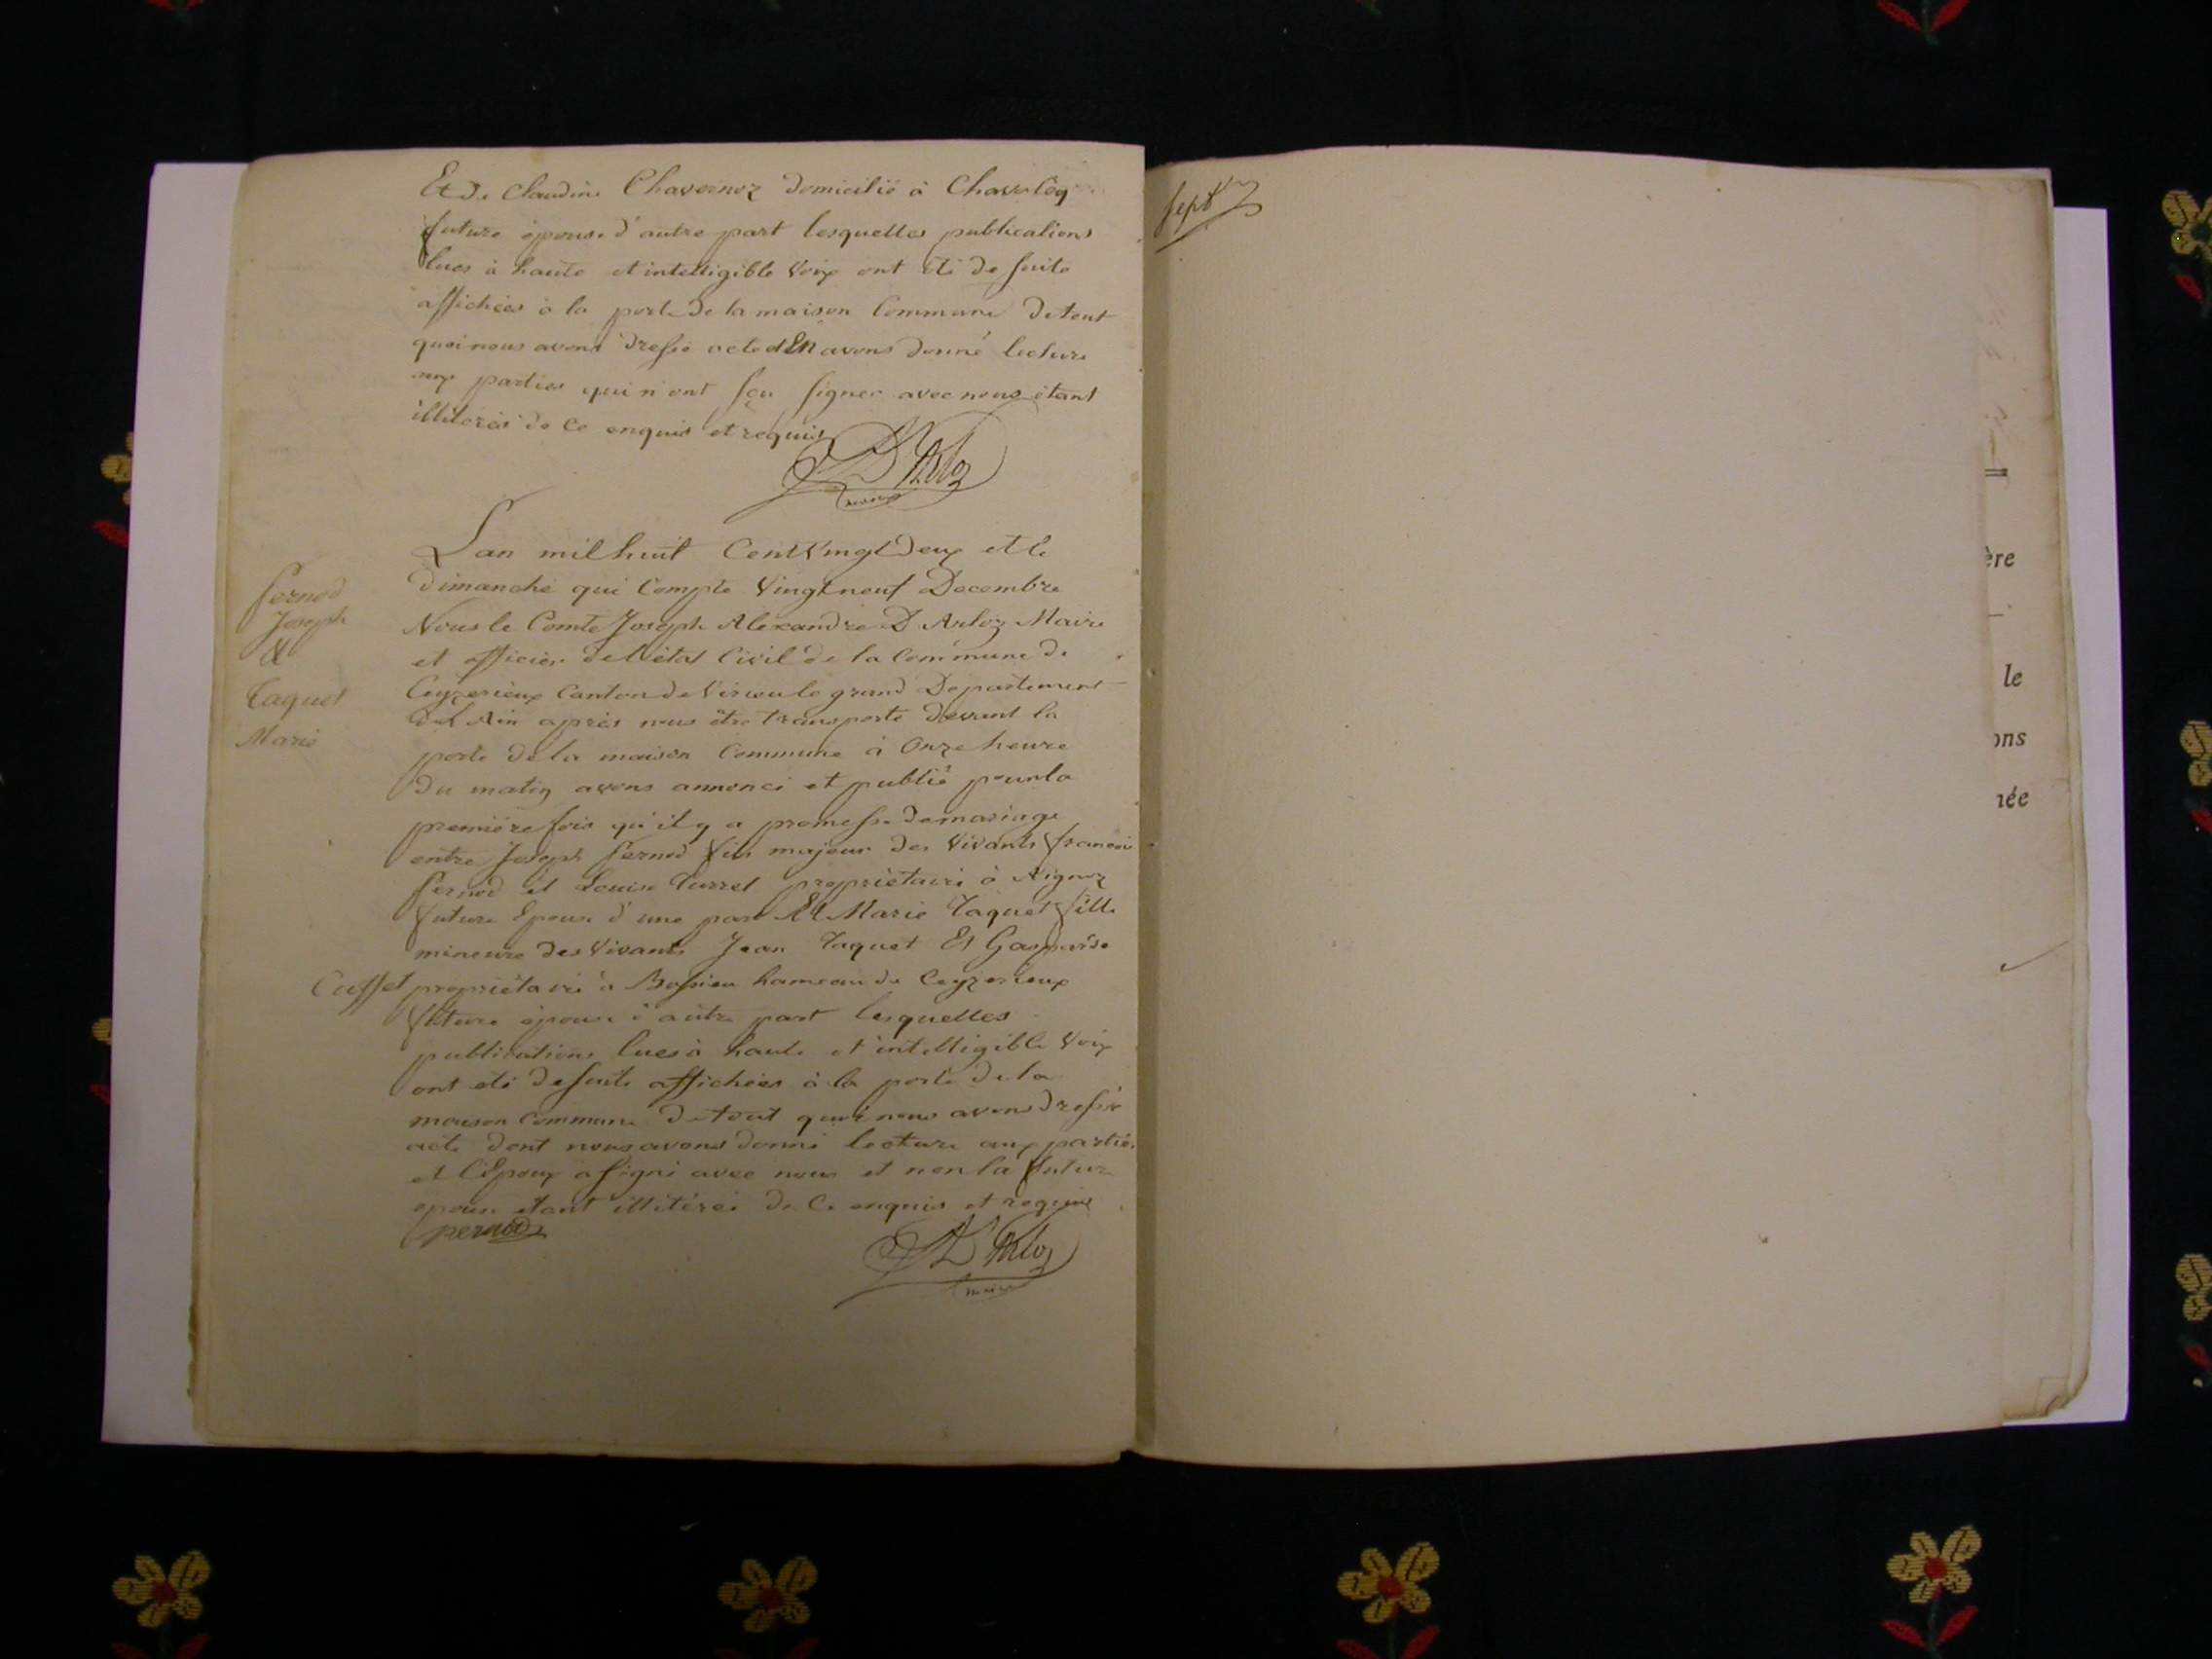 Et De Claudine Chavoinoz domicilié à Chavoley
future épouse d'autre part lesquelles publications
lues à haute et intelligible Voix ont été de suite
affichées à la porte De la maison Commune De tout
quoi nous avons Dressé acte et En avons donné lecture
aux parties qui n'ont sçu signer avec nous étant
illiterés de Ce enquis et requis
D'Arloz
maire
Lan mil huit Cent Vingt Deux et le
Dimanche qui Compte Vingt neuf Decembre
Nous le Comte Joseph Alexandre D'Arloz Maire
et officier de l'état Civil de la Commune de
Ceyzerieux Canton de Virieu le grand Departement
de l'Ain après nous être transporté devant la
porte de la maison Commune à Onze heure
Du matin avons annoncé et publié pour la
première fois qu'il y a promesse de mariage
entre Joseph Pernod fils majeur des Vivants françois
Pernod et Louise Curret propriétaire à Aignoz
future Epoux d'une part Et Marie Taquet fille
mineure des Vivants Jean Taquet Et Gasparde
Cuffet propriétaire à Bossieu hameau de Ceyzerieux
future épouse d'autre part lesquelles
publications lues à haute et intelligible Voix
ont été de suite affichées à la porte de la
maison Commune De tout quoi nous avons Dressé
acte dont nous avons donné lecture aux parties
et l'Epoux a signé avec nous et non la future
épouse étant illitérée de Ce enquis et requis
pernod
D'Arloz
maire
Pernod
Joseph
&
Taquet
Marie
sept
ère
le
ons
née